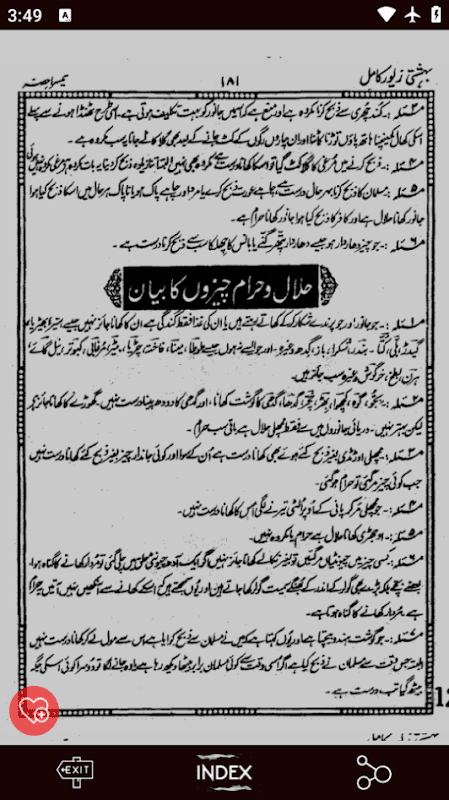 3:49
A
بہشتی زیور کامل
۱۸۱
تیسرا حصہ
مسئلہ ۳:۔ کند چھری سے ذبح کرنا مکروہ ہے اور منع ہے کہ اسمیں جانور کو بہت تکلیف ہوتی ہے۔ اسی طرح ٹھنڈا ہونے سے پہلے
اسکی کھال کھینچنا ہاتھ پاؤں توڑنا کاٹنا اور ان چاروں رگوں کے کٹ جانے کے بعد بھی گلا کاٹے جانا یہ سب مکروہ ہے۔
مسئلہ ۴:۔ ذبح کرنے میں مرغی کا گلا کٹ گیا تو اسکا کھانا درست ہے مکروہ بھی نہیں البتہ اتنا زیادہ ذبح کر دینا یہ بات مکروہ ہے مرغی مکروہ نہیں ہوئی
مسئلہ ۵:۔ مسلمان کا ذبح کرنا بہرحال درست ہے چاہے عورت ذبح کرے یا مرد اور چاہے پاک ہو یا ناپاک ہر حال میں اسکا ذبح کیا ہوا
جانور کھانا حلال ہے اور کافر کا ذبح کیا ہوا جانور کھانا حرام ہے۔
مسئلہ ۶:۔ جو چیز دھاردار ہو جیسے دھاردار پتھر گنے یا بانس کا چھلکا سب سے ذبح کرنا درست ہے۔
حلال و حرام چیزوں کا بیان
مسئلہ ۱:۔ جو جانور اور جو پرندے شکار کر کے کھاتے پیتے ہیں یا ان کی غذا فقط گندگی ہے ان کا کھانا جائز نہیں جیسے شیر بھیڑیا
گیدڑ بلی کتا۔ بندر، شکرا، باز، گدھ وغیرہ اور جو ایسے نہ ہوں جیسے طوطا، مینا، فاختہ، چڑیا، بٹیر، مرغابی، کبوتر، نیل گائے
ہرن، بطخ، خرگوش وغیرہ سب جائز ہیں۔
مسئلہ ۲:۔ بجو، گوہ، کچھوا، خچر، گدھا، گدھی کا گوشت کھانا، اور گدھی کا دودھ پینا درست نہیں۔ گھوڑے کا کھانا جائز ہے
لیکن بہتر نہیں۔ دریائی جانوروں میں سے فقط مچھلی حلال ہے باقی سب حرام۔
مسئلہ ۳:۔ مچھلی اور ٹڈی بغیر ذبح کئے ہوئے بھی کھانا درست ہے ان کے سوا اور کوئی جاندار چیز بغیر ذبح کئے کھانا درست نہیں
جب کوئی چیز مر گئی تو حرام ہو گئی۔
مسئلہ ۴:۔ جو مچھلی مر کر پانی کے اوپر الٹی تیرنے لگی اس کا کھانا درست نہیں۔
مسئلہ ۵:۔ اوجھڑی کھانا حلال ہے حرام یا مکروہ نہیں۔
مسئلہ ۶:۔ کسی چیز میں چیونٹیاں مر گئیں تو بغیر نکالے کھانا جائز نہیں اگر ایک آدھ چیونٹی حلق میں چلی گئی تو مردار کھانے کا گناہ ہوا۔
بعضے بچے بلکہ بڑے بھی گولر کے اندر کے بھنگے سمیت گولر کھا جاتے ہیں اور یوں سمجھتے ہیں کہ اسکے کھانے سے آنکھیں نہیں آتیں یہ حرام
ہے، مردار کھانے کا گناہ ہوتا ہے۔
مسئلہ ۷:۔ جو گوشت ہندو بیچتا ہے اور یوں کہتا ہے کہ میں نے مسلمان سے ذبح کرایا ہے اس سے مول لے کر کھانا درست نہیں
البتہ جس وقت سے مسلمان نے ذبح کیا ہے اگر اسی وقت سے کوئی مسلمان برابر بیٹھا دیکھ رہا ہے یا وہ جانے لگا تو دوسرا کوئی اسکی جگہ
بیٹھ گیا تب درست ہے۔
EXIT
INDEX